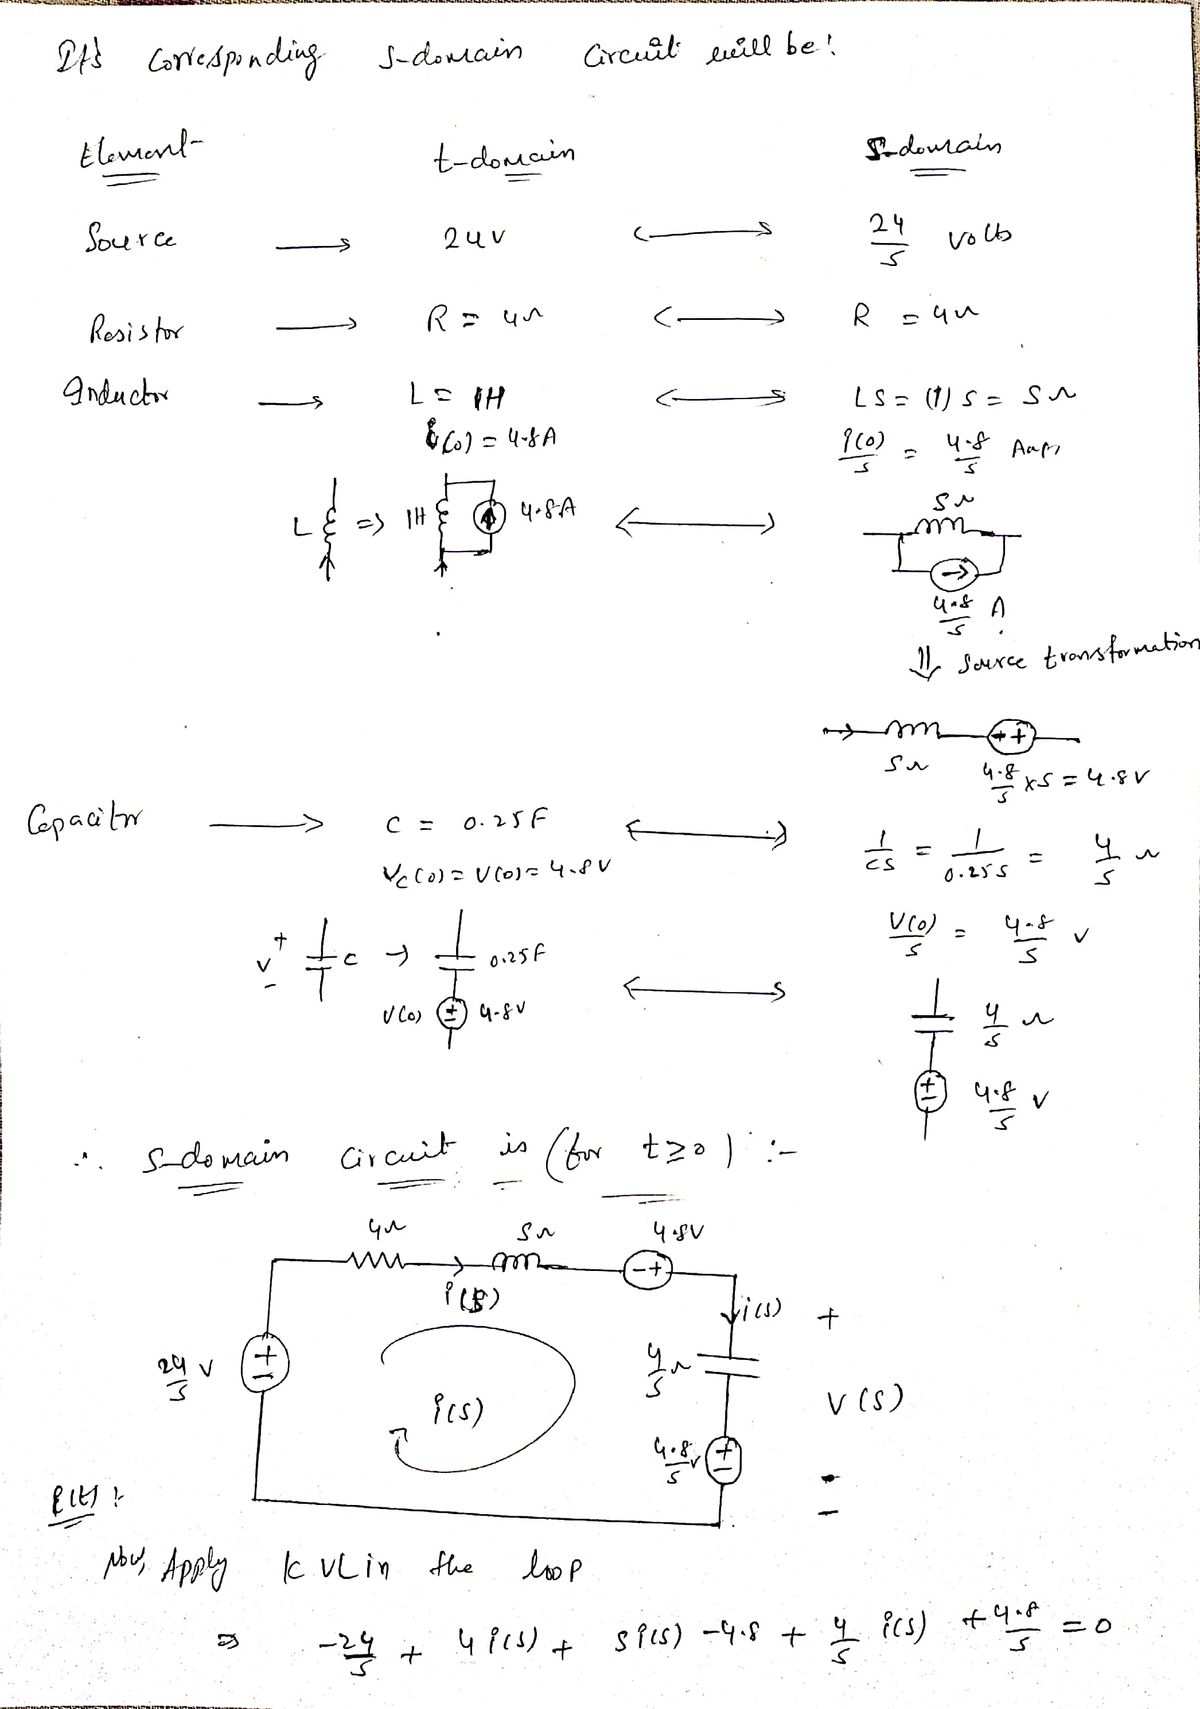 It's Corresponding S-domain Circuit will be:
Element t-domain S-domain
Source → 24V ↔ 24/s volts
Resistor → R = 4Ω ↔ R = 4Ω
Inductor → L = 1H ↔ LS = (1) S = SΩ
i(0) = 4.8A i(0)/s = 4.8/s Amps
L ⇒ 1H 4.8A ↔ SΩ
4.8/s A
⇓ Source transformation
SΩ 4.8/s × S = 4.8V
Capacitor → C = 0.25F ↔ 1/CS = 1/0.25S = 4/s Ω
Vc(0) = V(0) = 4.8V V(0)/s = 4.8/s V
+ V - C → 0.25F ↔ 4/s Ω
V(0) 4.8V 4.8/s V
∴ S-domain Circuit is (for t≥0) :-
4Ω SΩ 4.8V
i(s) i(s) +
24/s V i(s) 4/s Ω V(S)
4.8/s V -
i(t) :
Now, Apply KVL in the loop
⇒ -24/s + 4 i(s) + S i(s) - 4.8 + 4/s i(s) + 4.8/s = 0